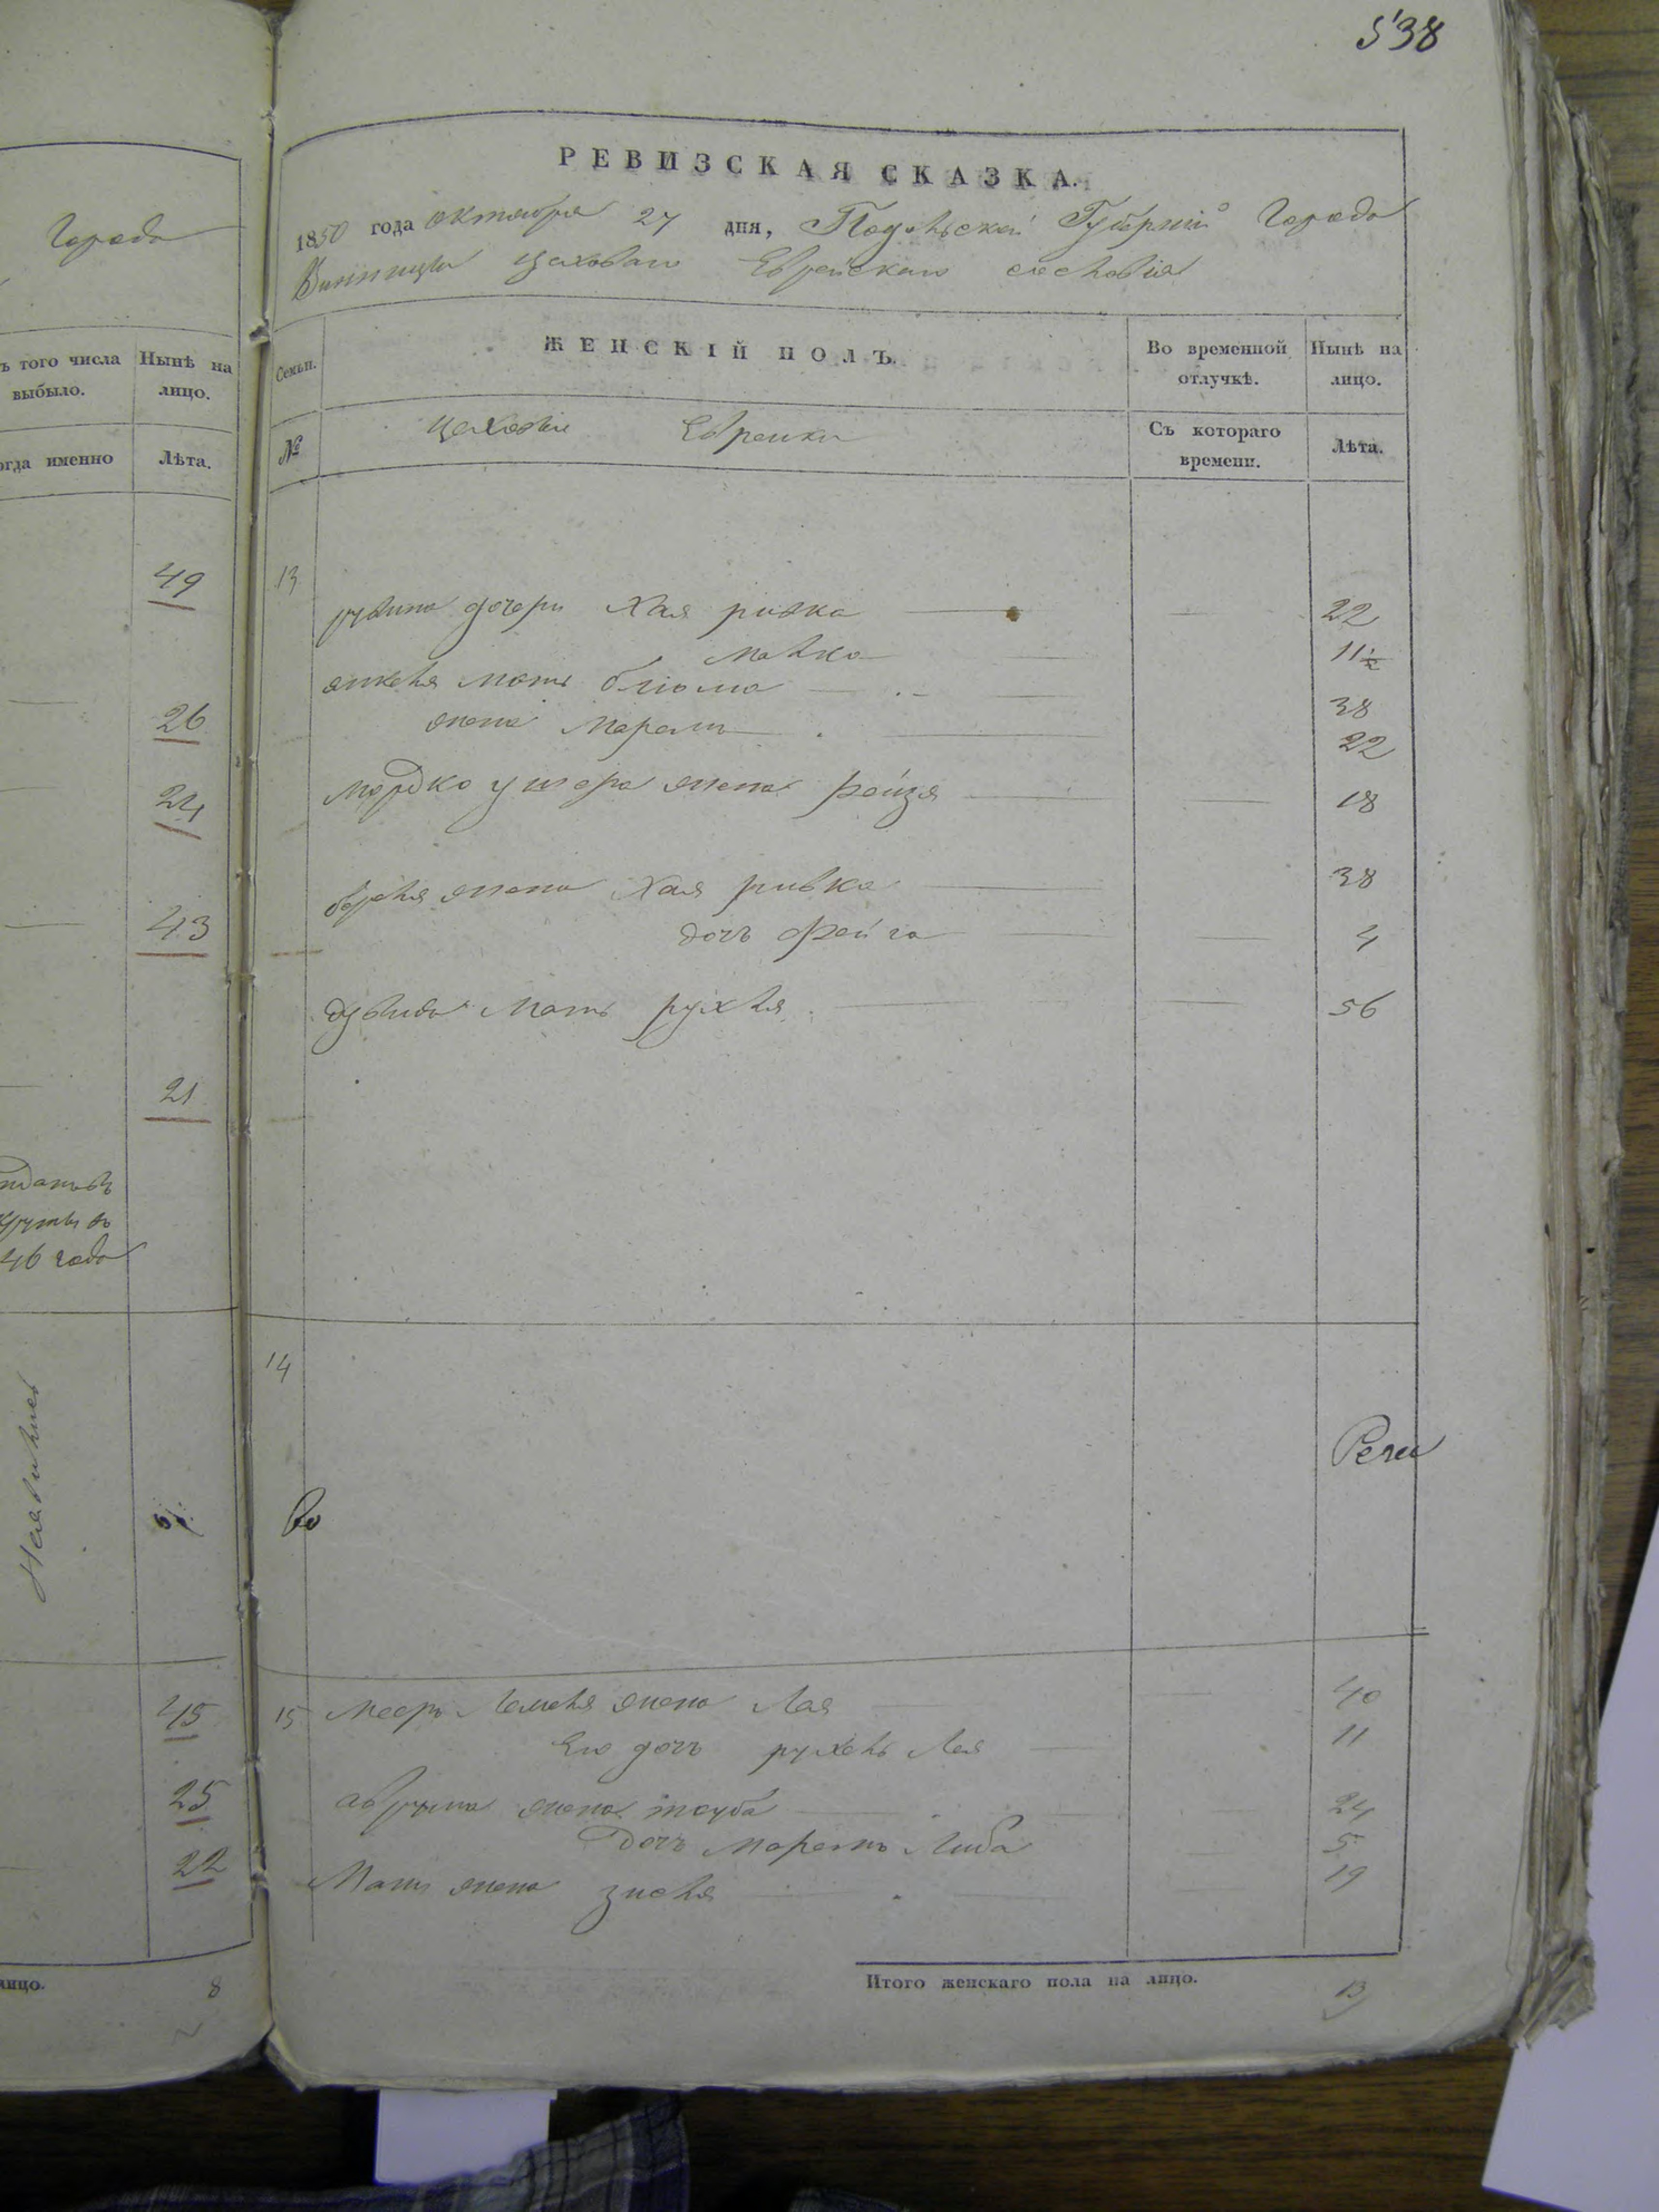 538
РЕВИЗСКАЯ СКАЗКА.
1850 года октября 27 дня, Подольской Губернии Города
Винницы цеховаго Еврейскаго сословія
Города
ъ того числа выбыло.
Нынѣ на лицо.
огда именно
Лѣта.
Семьи.
ЖЕНСКІЙ ПОЛЪ.
Во временной отлучкѣ.
Нынѣ на лицо.
№
цеховые Евреики
Съ котораго времени.
Лѣта.
49
26
24
43
21
46 года
45
25
22
лицо. 8
13
дочери Хая ривка 22
малка 11½
янкеля мать блюма 38
жена Марьям 22
мордко ушера жена рейзя 18
берка жена Хая ривка 38
дочь Фейга 4
мать рухля 56
14
Ре
15 Меер жена Лая 40
Его дочь рухель Лея 11
аврума жена тауба 24
Дочь марьямъ Либа 5
жена зисля 19
Итого женскаго пола на лицо. 13